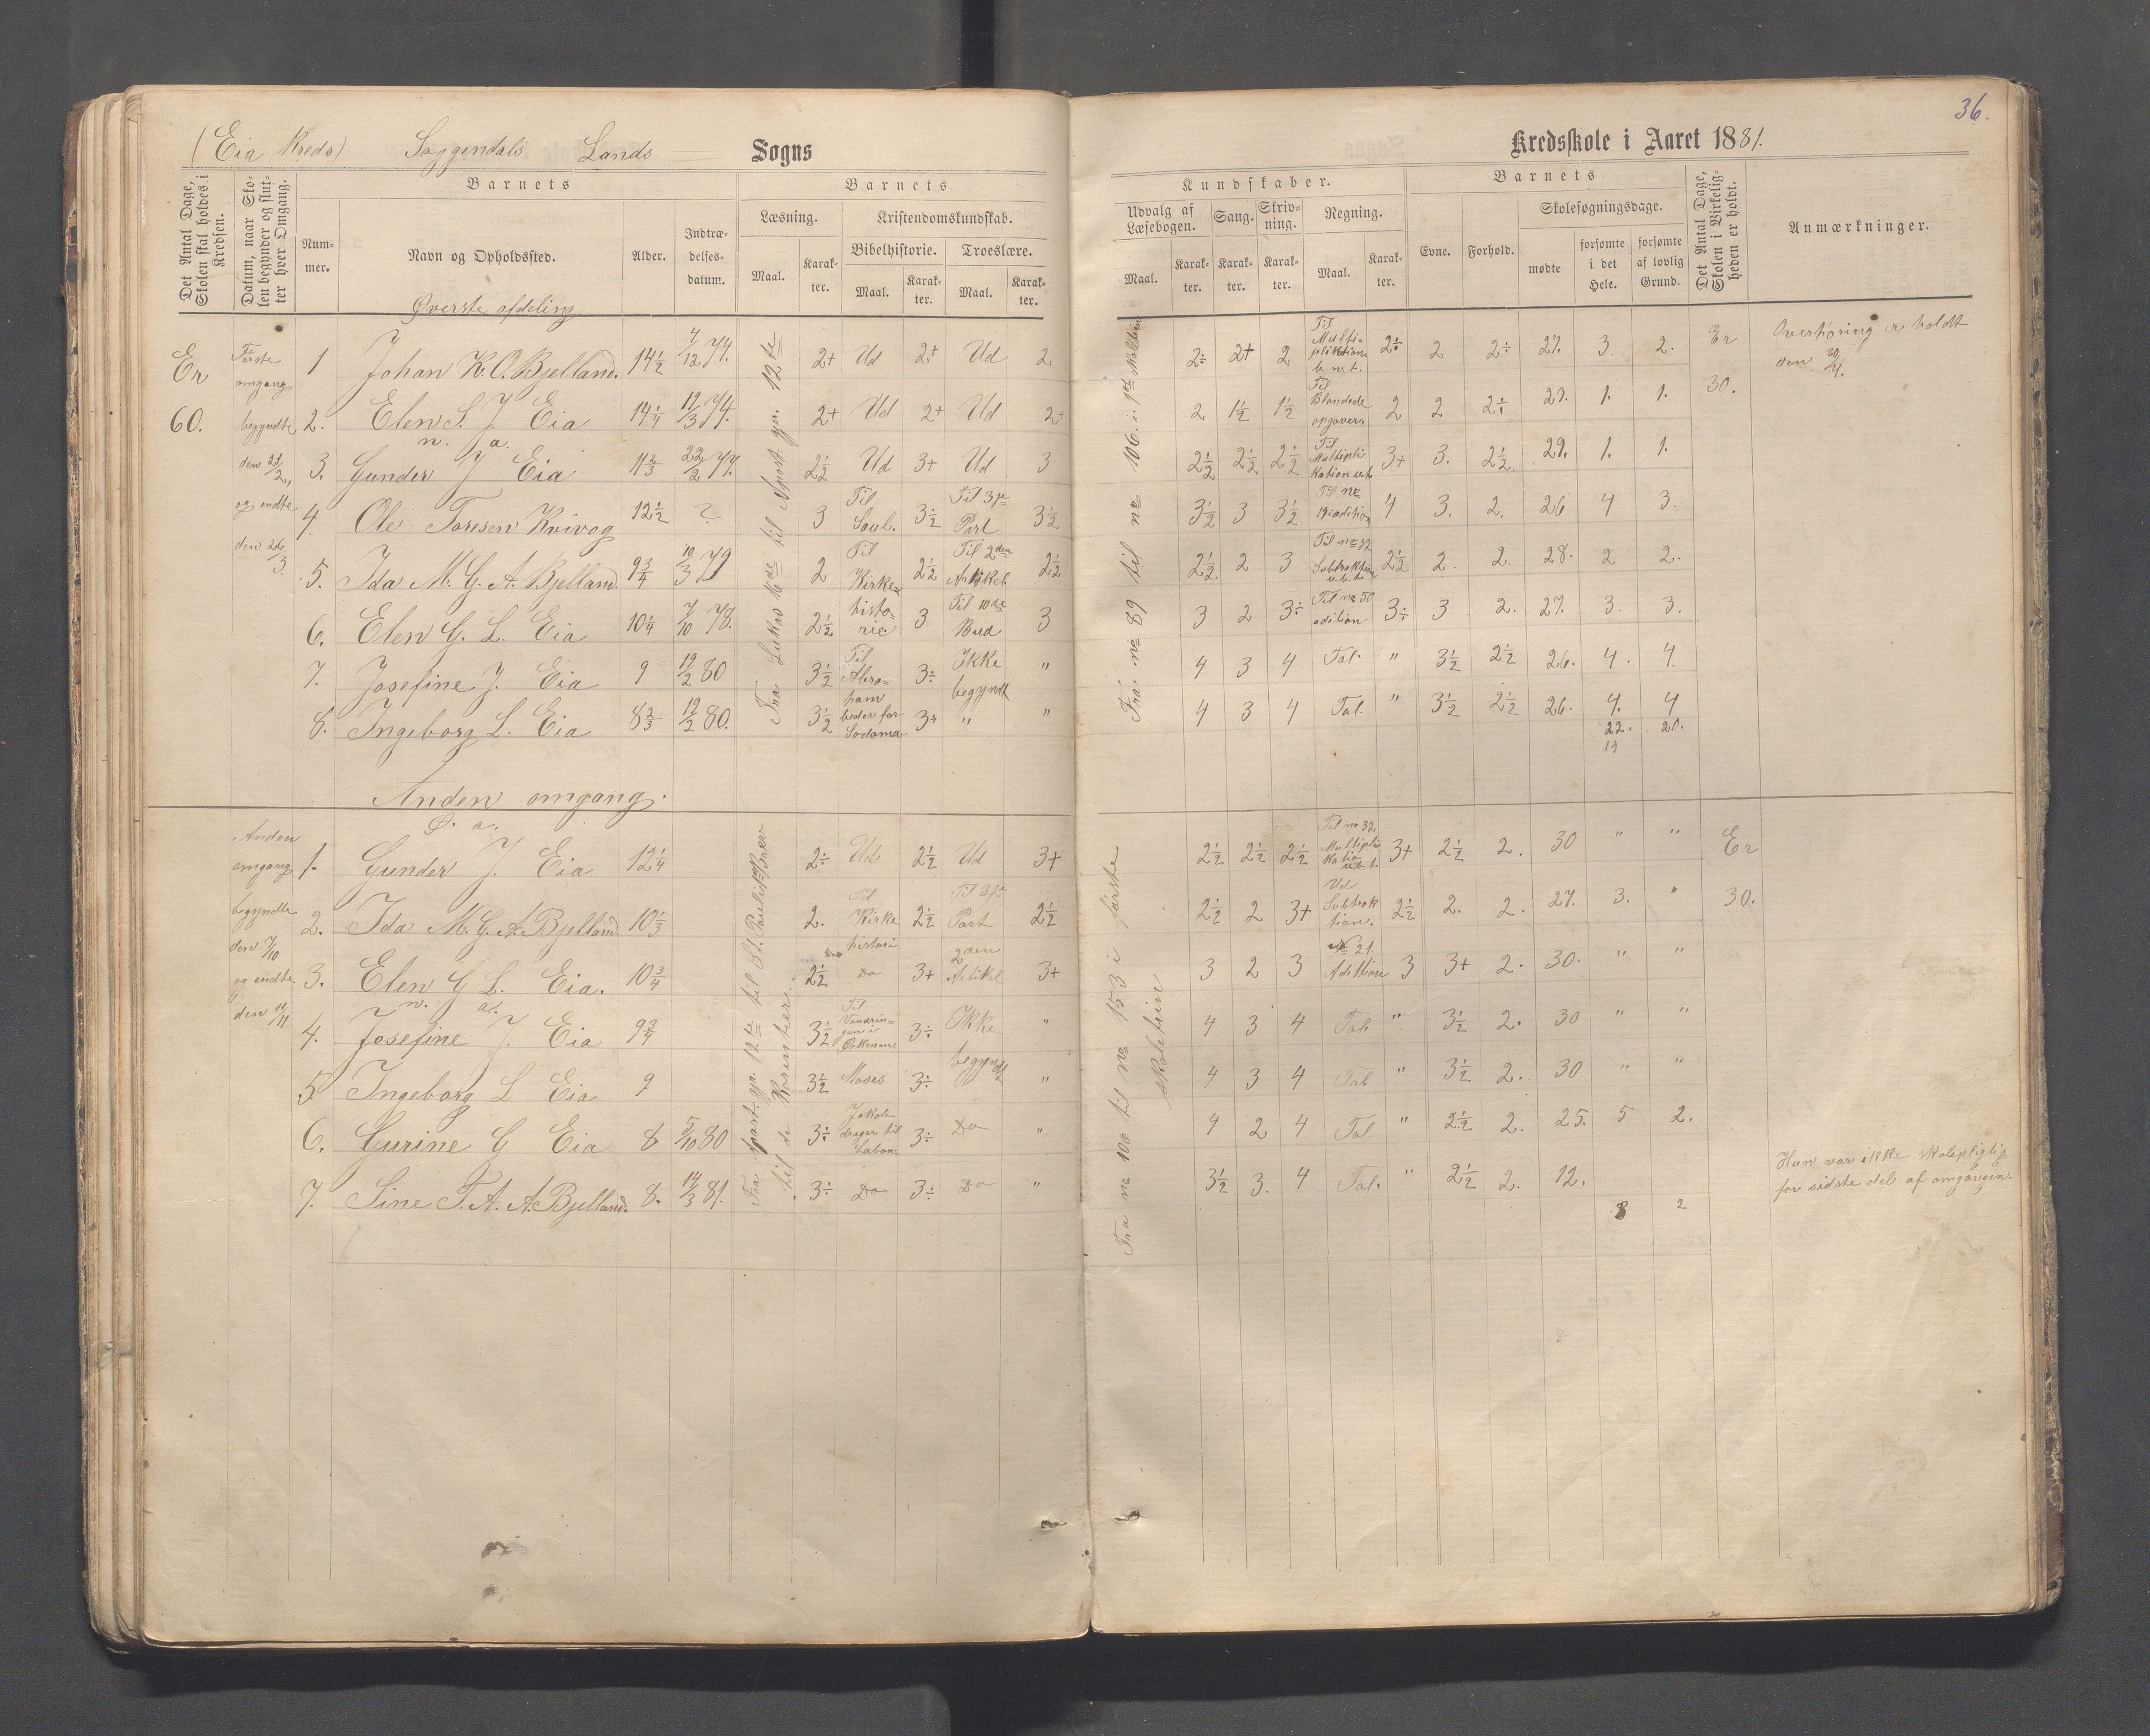 36.
(Eia Kreds) Soggendals Lands Sogns
Kredsskole i Aaret 1881.
Det Antal Dage, Skolen skal holdes i Kredsen.
Datum, naar Skolen begynder og slutter hver Omgang.
Barnets
Nummer.
Navn og Opholdssted.
Alder.
Indtrædelsesdatum.
Barnets
Læsning.
Maal.
Karakter.
Kristendomskundskab.
Bibelhistorie.
Maal.
Karakter.
Troeslære.
Maal.
Karakter.
Kundskaber.
Udvalg af Læsebogen.
Maal.
Karakter.
Sang.
Karakter.
Skrivning.
Karakter.
Regning.
Maal.
Karakter.
Barnets
Evne.
Forhold.
Skolesøgningsdage.
mødte
forsømte i det Hele.
forsømte af lovlig Grund.
Det Antal Dage, Skolen i Virkeligheden er holdt.
Anmærkninger.
Øverste afdeling
Er 60.
Første omgang begyndte den 21/2, og endte den 26/3.
Fra Lukas 16de til Apost. gjn. 12te
Fra no 89 til no 106 i 1ste skoletrin
1 Johan K. O. Bjelland. 14 1/2 4/12 74. 2+ Ud 2+ Ud 2 2÷ 2+ 2 Til Multiplikation b.n.t. 2÷ 2 2÷ 27. 3. 2. Er 30. Overhøring er holdt den 30/4.
2. Elen S. J. Eia 14 1/4 12/3 74. 2+ Ud 2+ Ud 2+ 2 1 1/2 1 1/2 Til Blandede opgaver. 2 2 2÷ 29. 1. 1.
n. a.
3. Gunder J Eia 11 2/3 22/2 77. 2 1/2 Ud 3+ Ud 3 2 1/2 2 1/2 2 1/2 Til Multiplikation u.b.t. 3+ 3. 2 1/2 29. 1. 1.
4. Ole Toresen Kvivog 12 1/2 ? 3 Til Saul. 3 1/2 Til 3je Part 3 1/2 3 1/2 3 3 1/2 Til no 19 adition 4 3. 2. 26 4 3.
5. Ida M. G. A. Bjelland 9 3/4 10/3 79 2 Til Kirke 2 1/2 Til 2den Artikel 2 1/2 2 1/2 2 3 Til no 32 Subtraktion u.b.t. 2 1/2 2. 2. 28. 2 2.
6. Elen G. L. Eia 10 1/4 7/10 78. 2 1/2 historie 3 Til 10de Bud 3 3 2 3÷ Til no 50 adition 3÷ 3 2. 27. 3. 3.
7. Josefine J. Eia 9 19/2 80 3 1/2 Til Abraham 3÷ Ikke begyndt " 4 3 4 Tal. " 3 1/2 2 1/2 26. 4. 4.
8. Ingeborg L. Eia 8 2/3 19/2 80. 3 1/2 beder for Sodoma 3+ " " 4 3 4 Tal. " 3 1/2 2 1/2 26. 4. 4
22. 20.
19
Anden omgang.
Anden omgang begyndte den 7/10 og endte den 11/11
Ø. a.
Fra Apost. gjn. 12te til St. Pauli Brev til de Korintier.
Fra no 100 til no 153 i første skoletrin
1. Gunder J. Eia 12 1/4 2÷ Ud. 2 1/2 Ud 3+ 2 1/2 2 1/2 2 1/2 Til no 32 Multiplikation u.b.t. 3+ 2 1/2 2. 30 " " Er 30.
2. Ida M. G. A. Bjelland. 10 1/3 2. Til Kirkehistori 2 1/2 Til 3je Part 2 1/2 2 1/2 2 3+ Ud Subtraktion. 2 1/2 2. 2. 27. 3. "
3. Elen G L. Eia. 10 3/4 2 1/2 Do 3+ 2den Artikel 3+ 3 2 3 No 21. Adition 3 3+ 2. 30. " "
n. a.
4. Josefine J. Eia 9 3/4 3 1/2 Til Vandringen i Ørkenen 3÷ Ikke begyndt " 4 3 4 Tal " 3 1/2 2. 30 " "
5 Ingeborg L Eia 9 3 1/2 Moses 3÷ " 4 3 4 Tal " 3 1/2 2. 30 " "
6. Gurine G Eia 8 5/10 80 3÷ Jakob drager til Laban 3÷ Do " 4 2 4 Tal " 2 1/2 2. 25. 5 2.
7. Sine T. A. A. Bjelland. 8. 14/3 81. 3÷ Do 3÷ Do " 3 1/2 3. 4 Tal. " 2 1/2 2. 12.
Hun var ikke skolepligtig for sidste del af omgangen.
8 2